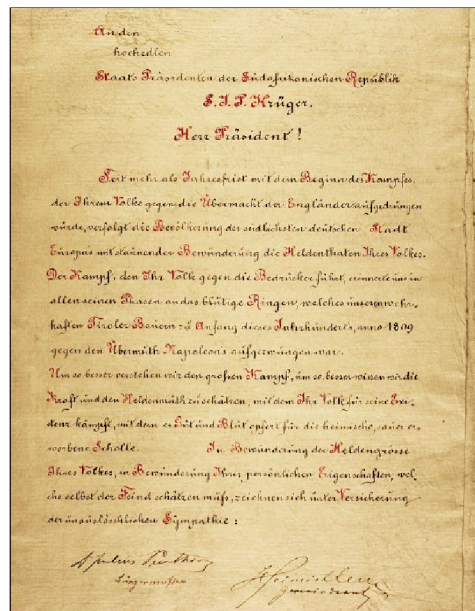 An den
hochedlen
Staats Präsidenten der Südafrikanischen Republik
S. J. P. Krüger.
Herr Präsident !
Seit mehr als Jahresfrist mit dem Beginn des Kampfes,
der Ihrem Volke gegen die Übermacht der Engländer aufgedrungen
wurde, verfolgt die Bevölkerung der südlichsten deutschen Stadt
Europas mit staunender Bewunderung die Heldenthaten Ihres Volkes.
Der Kampf, den Ihr Volk gegen die Bedrücker führt, erinnerte uns in
allen seinen Phasen an das blutige Ringen, welches unseren wehr-
haften Tiroler Bauern zu Anfang dieses Jahrhunderts, anno 1809
gegen den Übermuth Napoleons aufgezwungen war.
Um so besser verstehen wir den großen Kampf, um so besser wissen wir die
Kraft und den Heldenmuth zu schätzen, mit dem Ihr Volk für seine
kämpft, mit dem es Gut und Blut opfert für die heimische, sauer er-
worbene Scholle. In Bewunderung der Heldengrosse
Ihres Volkes, in Bewunderung Ihrer persönlichen Eigenschaften, wel-
che selbst der Feind schätzen muß, zeichnen sich unter Versicherung
der unauslöschlichen Sympathie :
Julius
Bürgermeister